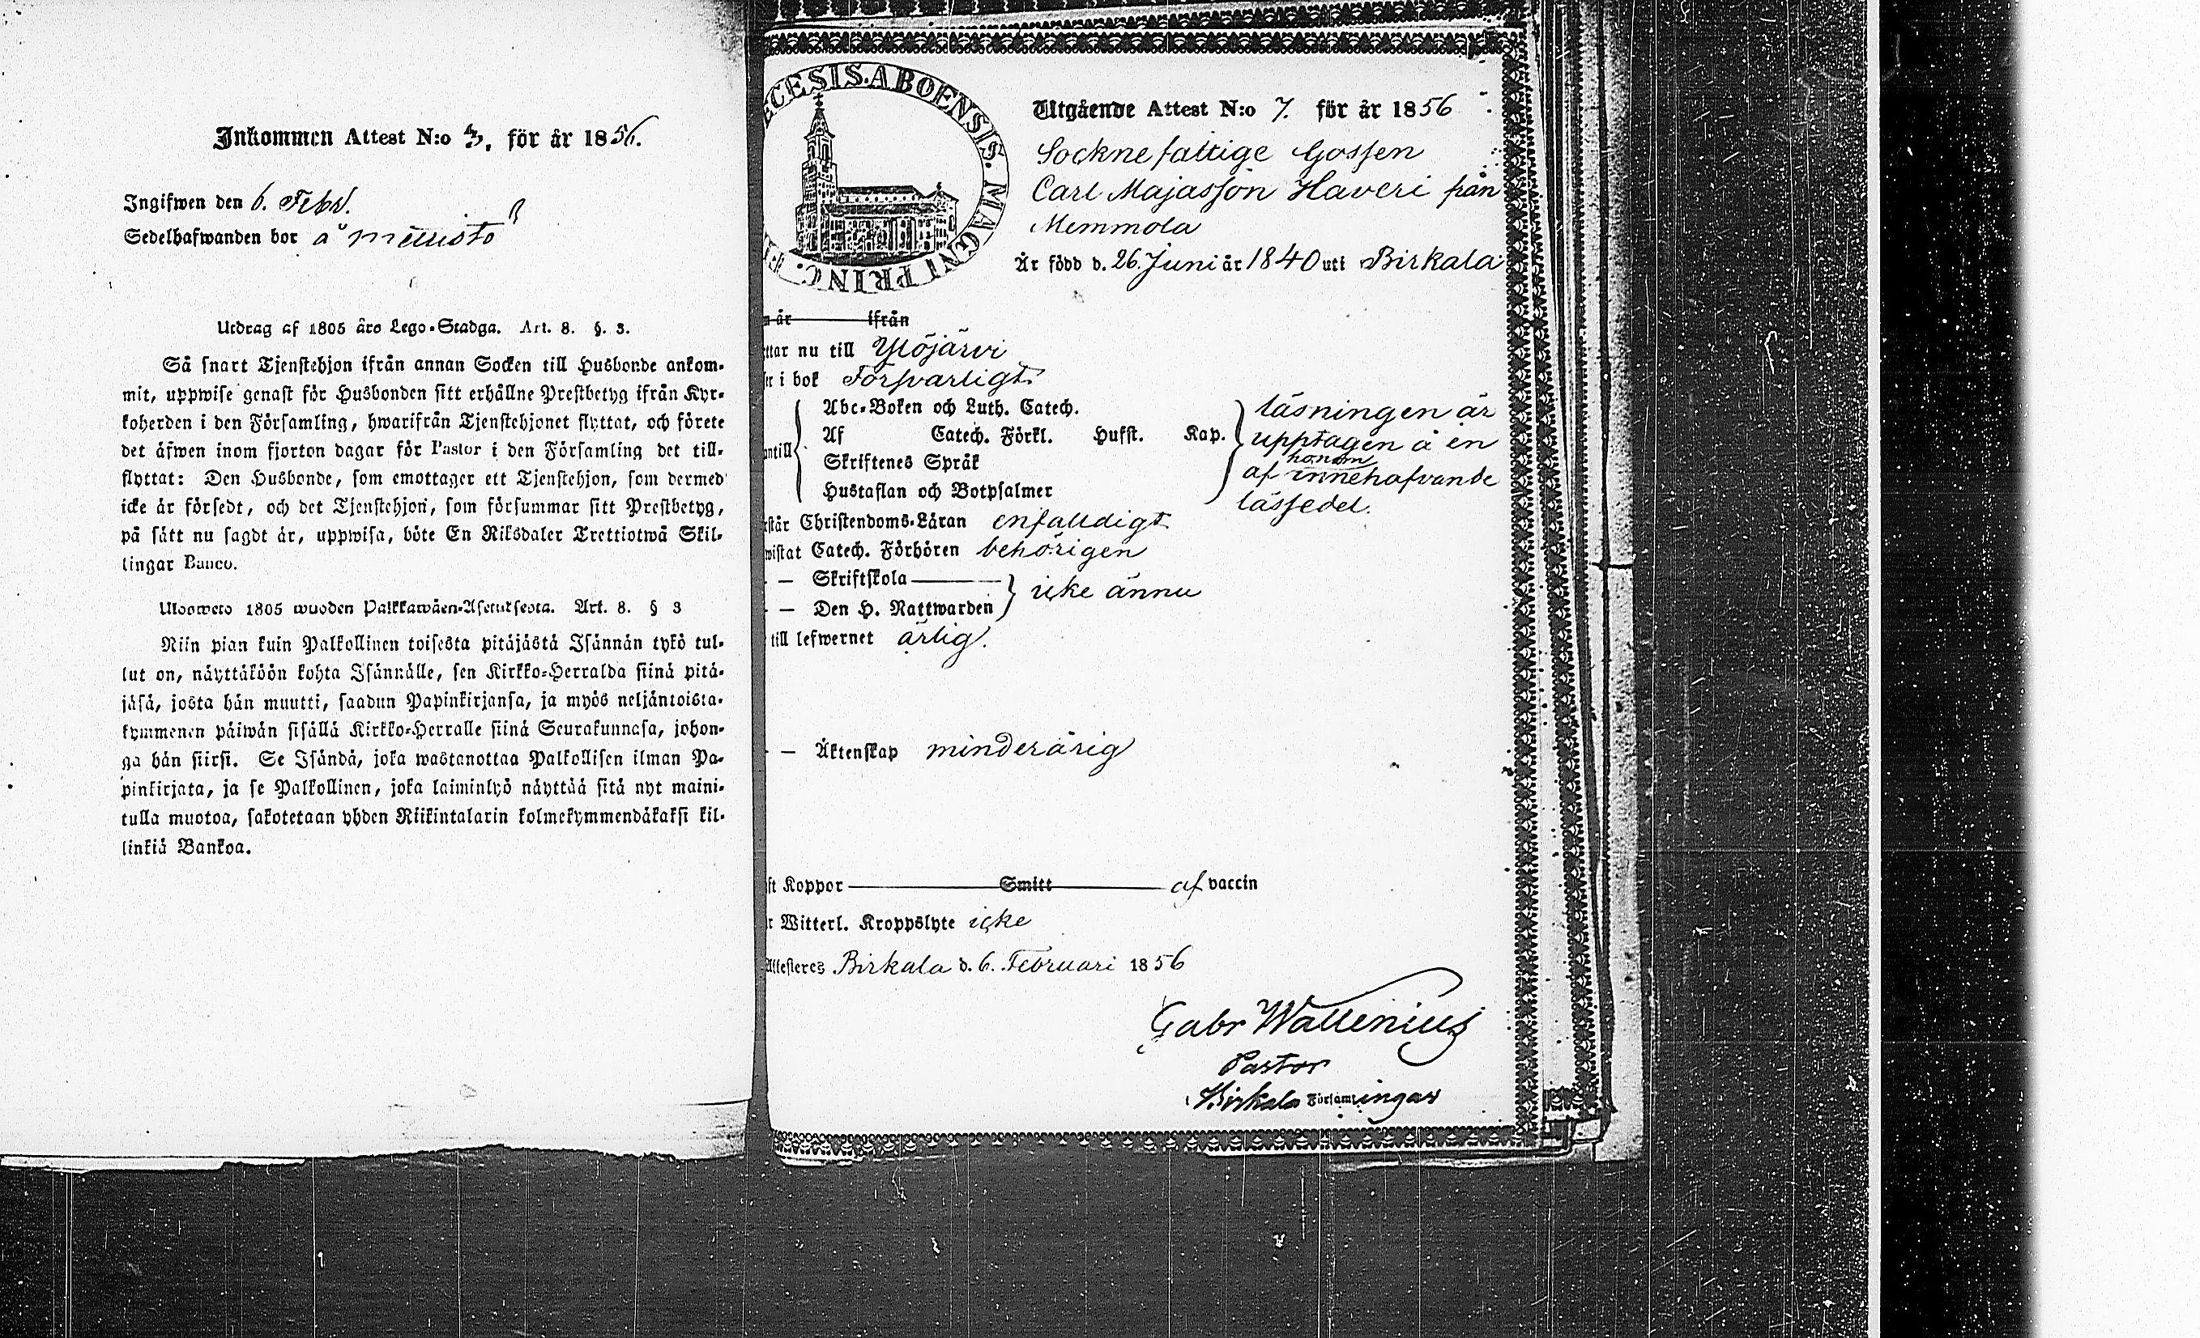 Inkommen Attest N:o 3, för år 1856.
Ingifwen den 6. Febr.
Sedelhafwanden bor å Mettisto
Utdrag af 1805 års Lego-Stadga. Art. 8. §. 3.
Så snart Tjenstehjon ifrån annan Socken till Husbonde ankom-
mit, uppwise genast för Husbonden sitt erhållne Prestbetyg ifrån Kyr-
koherden i den Församling, hwarifrån Tjenstehjonet flyttat, och förete
det äfwen inom fjorton dagar för Pastor i den Församling det till-
flyttat: Den Husbonde, som emottager ett Tjenstehjon, som dermed
icke är försedt, och det Tjenstehjon, som försummar sitt Prestbetyg,
på sätt nu sagdt är, uppwisa, böte En Riksdaler Trettiotwå Skil-
lingar Banco.
Ulosweto 1805 wuoden Palkkawäen-Asetuksesta. Art. 8. § 3
Niin pian kuin Palkollinen toisesta pitäjästä Isännän tykö tul-
lut on, näyttäköön kohta Isännälle, sen Kirkko-Herralda siinä pitä-
jäsä, josta hän muutti, saadun Papinkirjansa, ja myös neljäntoista-
kymmenen päiwän sisällä Kirkko-Herralle siinä Seurakunnasa, johon-
ga hän siirsi. Se Isändä, joka wastanottaa Palkollisen ilman Pa-
pinkirjata, ja se Palkollinen, joka laiminlyö näyttää sitä nyt maini-
tulla muotoa, sakotetaan yhden Riikintalarin kolmekymmendäkaksi kil-
linkiä Bankoa.
ECESIS. ABOENSIS. MAGNI PRINC. F
Utgående Attest N:o 7. för år 1856
Sockne fattige Gossen
Carl Majasson Haveri från
Memmola
Är född d. 26. Juni år 1840 uti Birkala
är ifrån
ttar nu till Ylöjärvi
i bok Försvarligt
Abc-Boken och Luth. Catech.
Af Catech. Förkl. Hufst. Kap.
antill Skriftenes Språk
Hustaflan och Botpsalmer
läsningen är
upptagen å en
honom
af innehafvande
lässedel.
står Christendoms-Läran enfaldigt
wistat Catech. Förhören behörigen
— Skriftskola
— Den H. Nattwarden
icke ännu
till lefwernet ärlig.
— Äktenskap minderårig
ft Koppor Smitt af vaccin
r Witterl. Kroppslyte icke
Attesteres Birkala d. 6. Februari 1856
Gabr Wallenius
Pastor
Birkala Församlingar